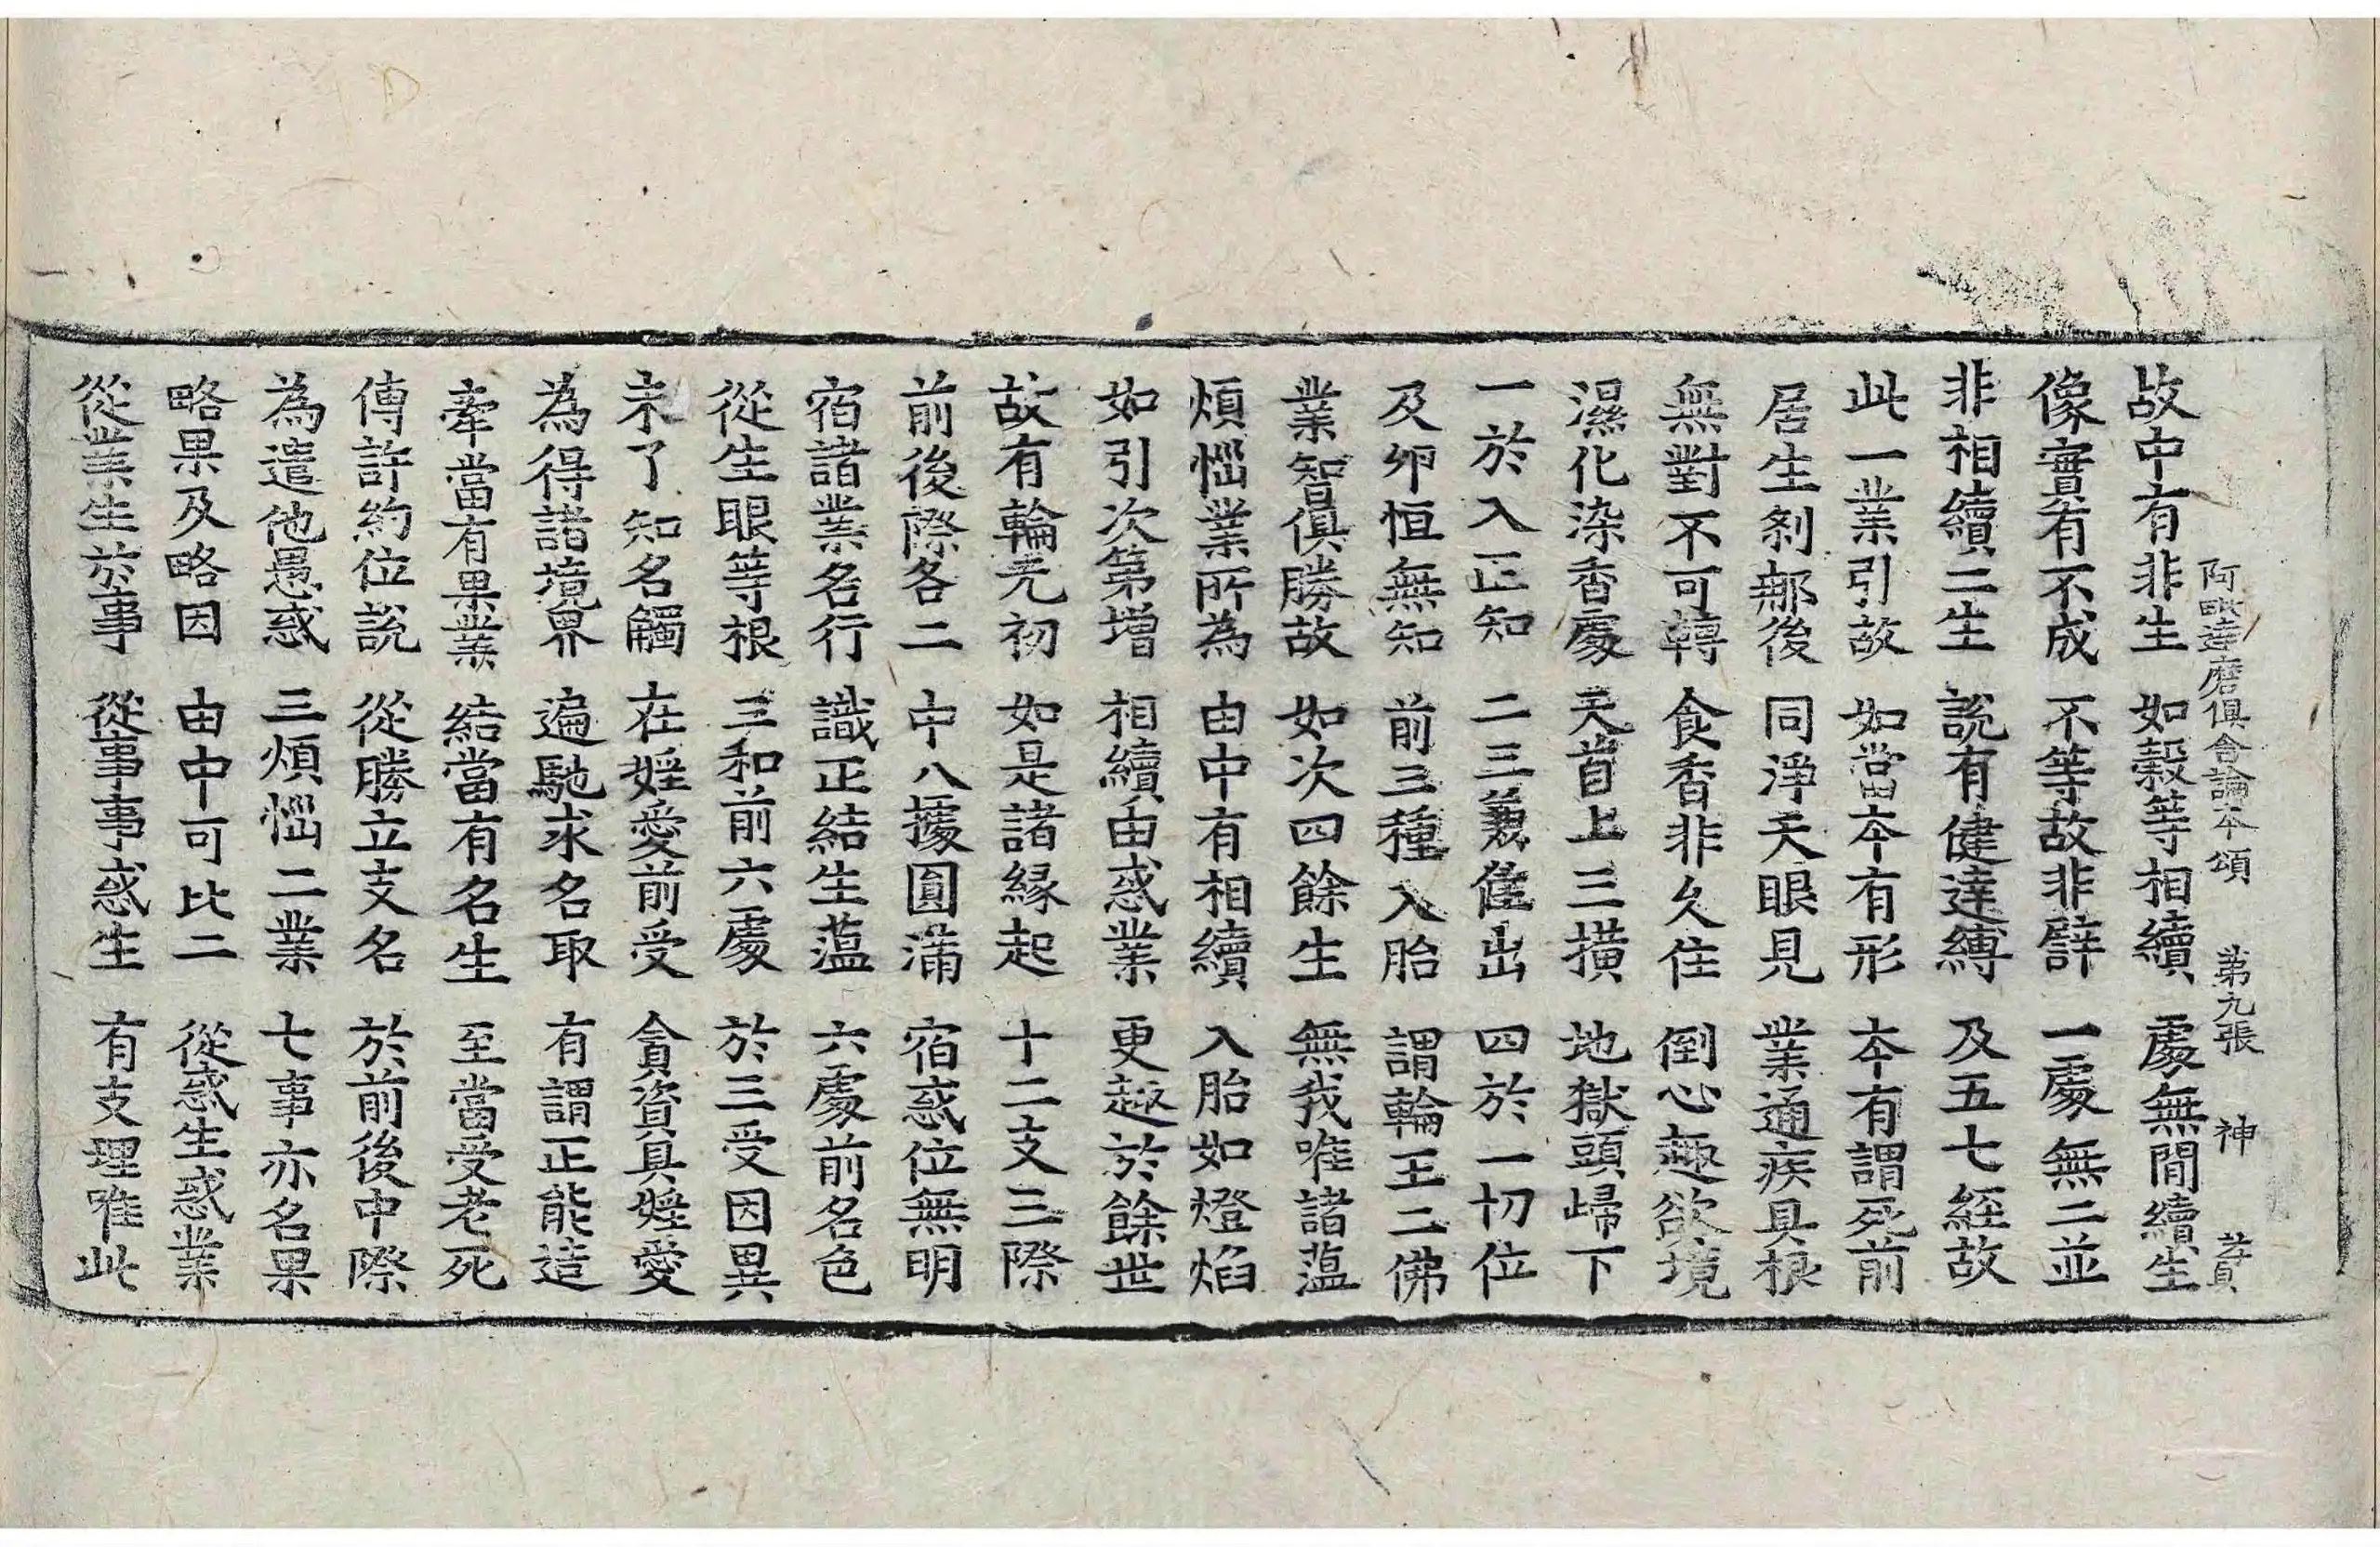 阿毗達磨俱舍論本頌　第九張　神
故中有非生　如穀等相續　處無間續生
像實有不成　不等故非譬　一處無二並
非相續二生　說有健達縛　及五七經故
此一業引故　如當本有形　本有謂死前
居生刹那後　同淨天眼見　業通疾具根
無對不可轉　食香非久住　倒心趣欲境
濕化染香處　天首上三橫　地獄頭歸下
一於入正知　二三兼住出　四於一切位
及卵恒無知　前三種入胎　謂輪王二佛
業智俱勝故　如次四餘生　無我唯諸蘊
煩惱業所為　由中有相續　入胎如燈焰
如引次第增　相續由惑業　更趣於餘世
故有輪无初　如是諸緣起　十二支三際
前後際各二　中八據圓滿　宿惑位無明
宿諸業名行　識正結生蘊　六處前名色
從生眼等根　三和前六處　於三受因異
未了知名觸　在婬愛前受　貪資具婬愛
為得諸境界　遍馳求名取　有謂正能造
牽當有果業　結當有名生　至當受老死
傳許約位說　從勝立支名　於前後中際
為遣他愚惑　三煩惱二業　七事亦名果
略果及略因　由中可比二　從惑生惑業
從業生於事　從事事惑生　有支理唯此